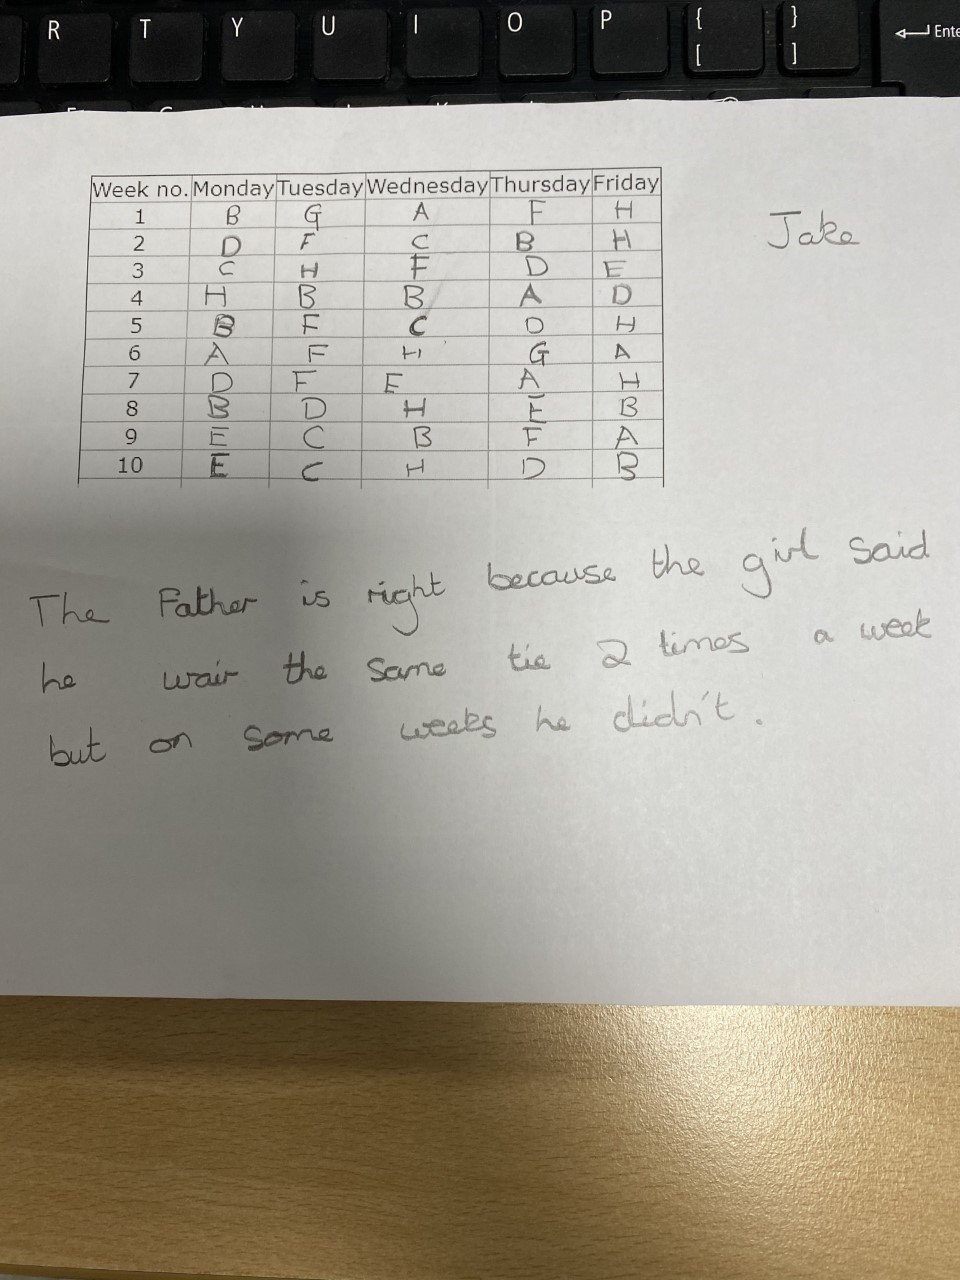 R T Y U I O P { [ } ] Ente
Week no. Monday Tuesday Wednesday Thursday Friday
1 B G A F H
Jake
2 D F C B H
3 C H F D E
4 H B B A D
5 B F C D H
6 A F H G A
7 D F E A H
8 B D H E B
9 E C B F A
10 E C H D B
The Father is right because the girl said
he wair the same tie 2 times a week
but on some weeks he didn't.